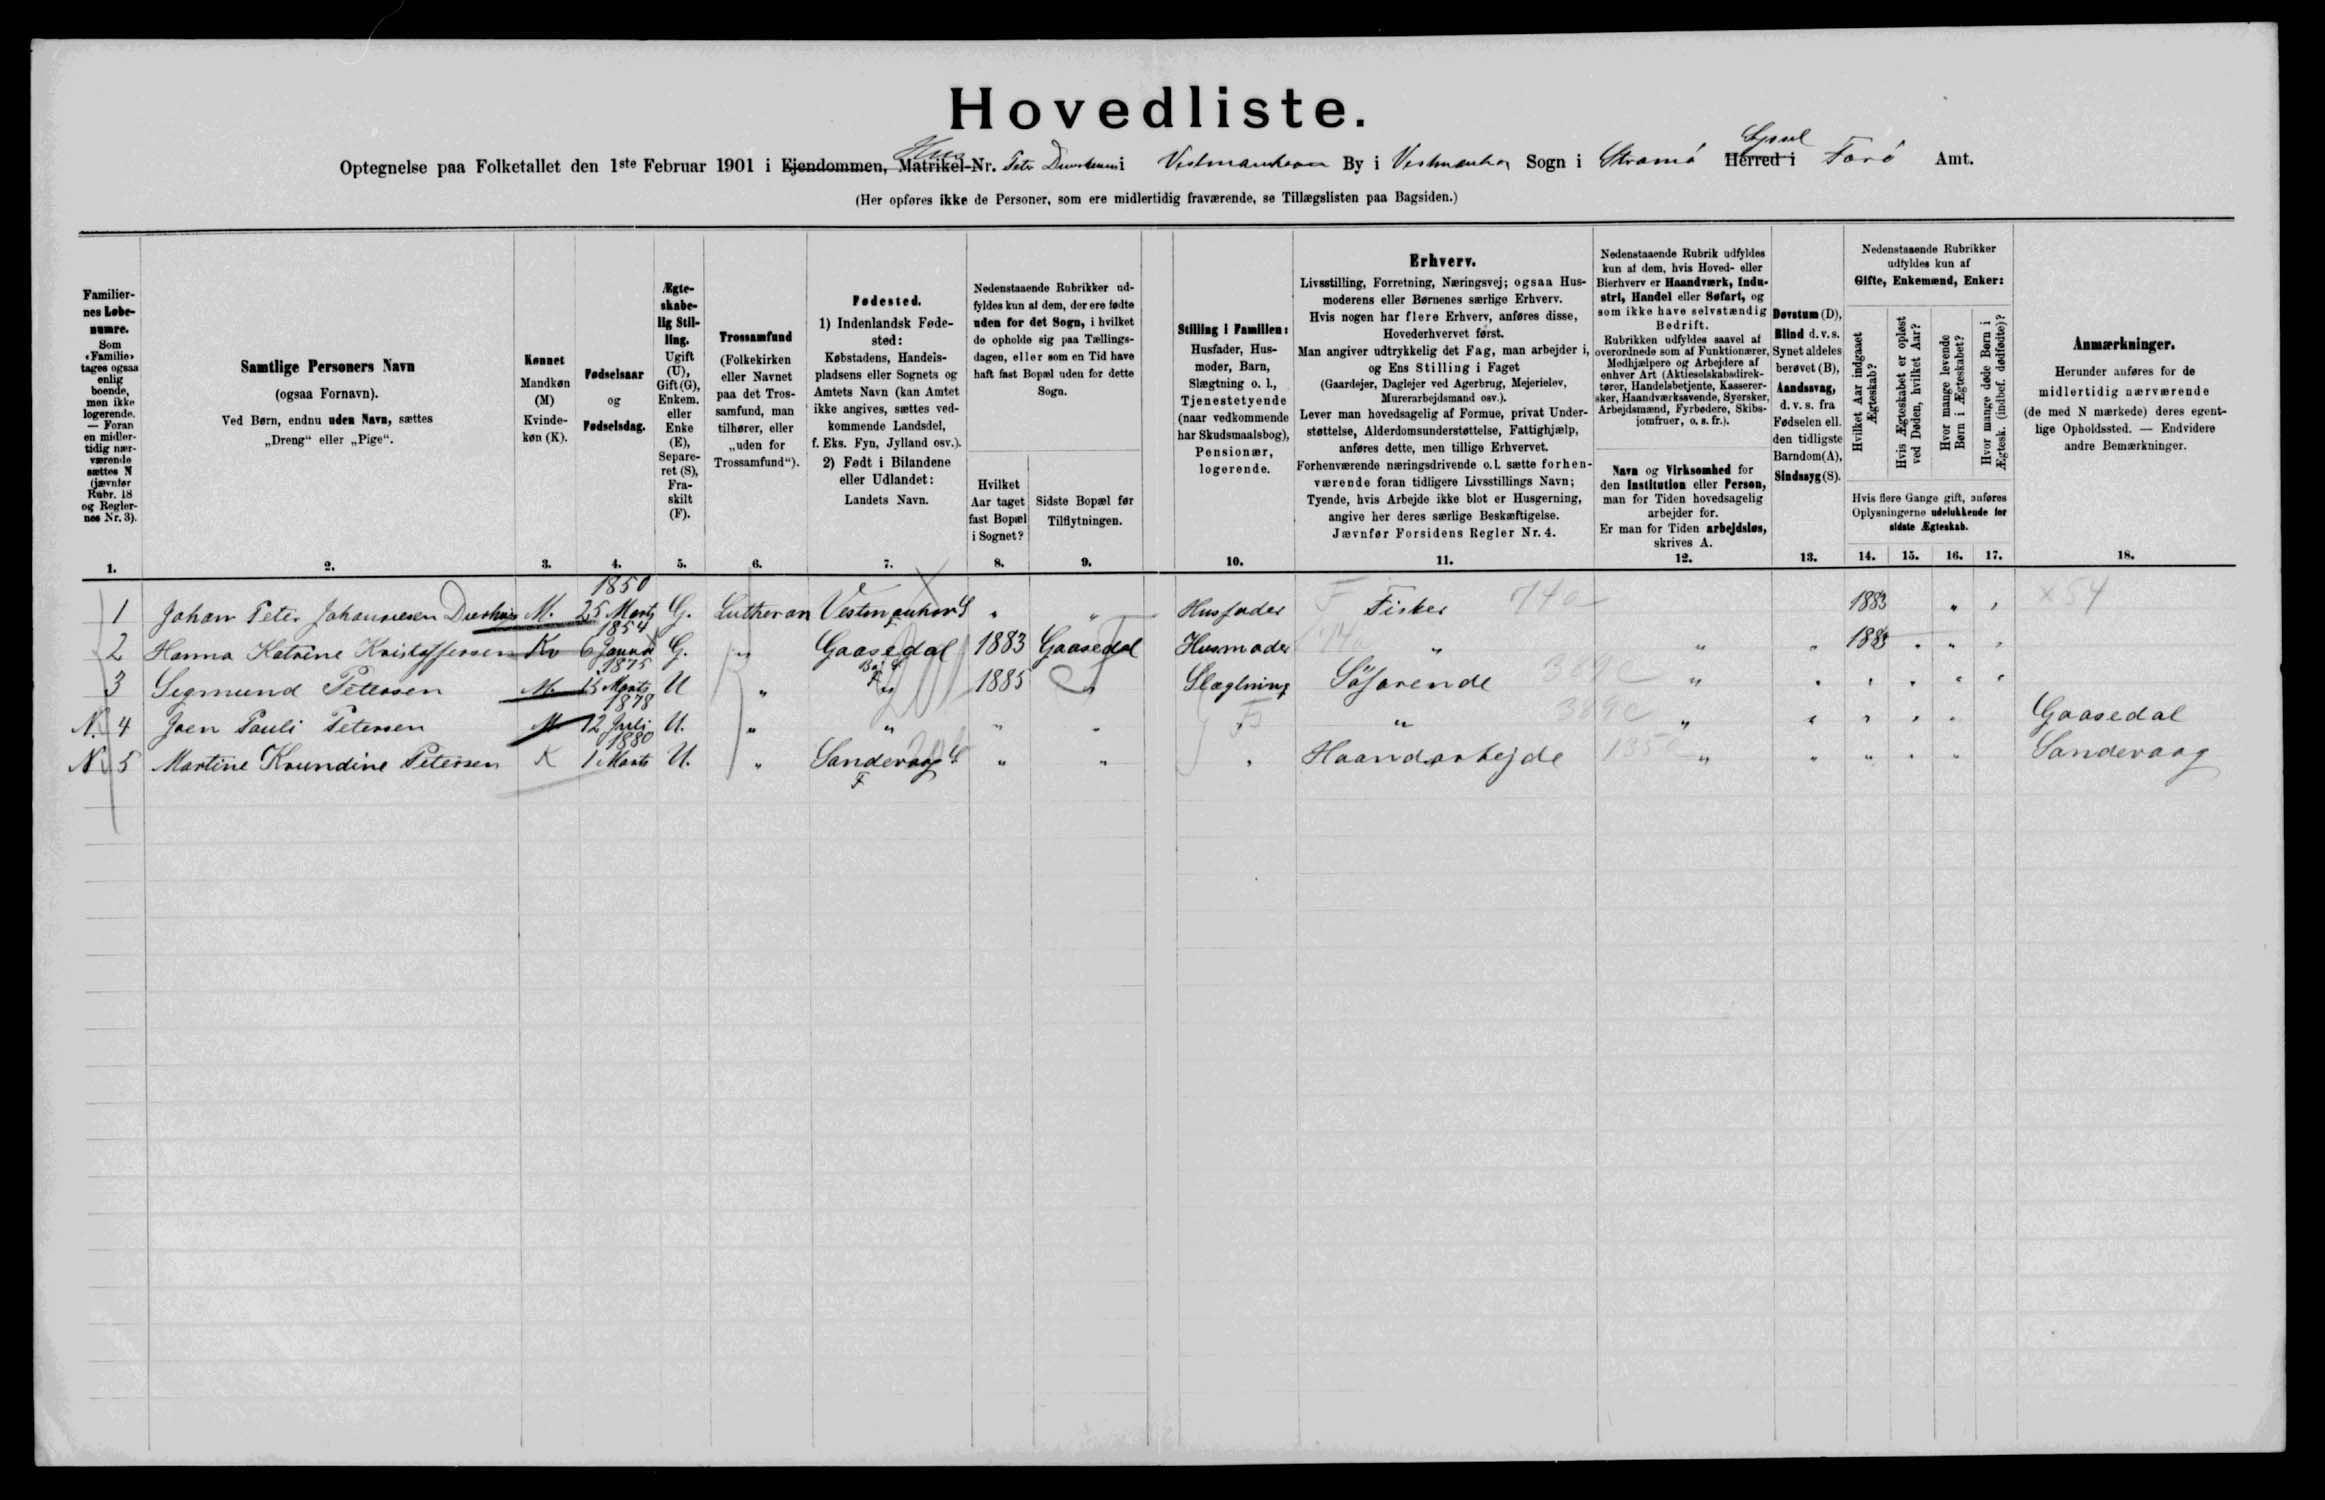 Hovedliste.
Optegnelse paa Folketallet den 1ste Februar 1901 i Ejendommen, Matrikel-Nr. Hus Peter i Vestmanhavn By i Vestmanha Sogn i Stromö Herred i Syssel Farö Amt.
(Her opføres ikke de Personer, som ere midlertidig fraværende, se Tillægslisten paa Bagsiden.)
Familiernes Løbenumre.
Som «Familie» tages ogsaa enlig boende, men ikke logerende. — Foran en midlertidig nærværende sættes N (jævnfør Rubr. 18 og Reglernes Nr. 3).
Samtlige Personers Navn
(ogsaa Fornavn).
Ved Børn, endnu uden Navn, sættes
„Dreng“ eller „Pige“.
Kønnet
Mandkøn (M)
Kvindekøn (K).
Fødselsaar
og
Fødselsdag.
Ægteskabelig Stilling.
Ugift (U), Gift (G), Enkem. eller Enke (E), Separeret (S), Fraskilt (F).
Trossamfund
(Folkekirken eller Navnet paa det Trossamfund, man tilhører, eller „uden for Trossamfund“).
Fødested.
1) Indenlandsk Fødested:
Købstadens, Handelspladsens eller Sognets og Amtets Navn (kan Amtet ikke angives, sættes vedkommende Landsdel, f. Eks. Fyn, Jylland osv.).
2) Født i Bilandene eller Udlandet:
Landets Navn.
Nedenstaaende Rubrikker udfyldes kun af dem, der ere fødte uden for det Sogn, i hvilket de opholde sig paa Tællingsdagen, eller som en Tid have haft fast Bopæl uden for dette Sogn.
Hvilket Aar taget fast Bopæl i Sognet?
Sidste Bopæl før Tilflytningen.
Stilling i Familien:
Husfader, Husmoder, Barn, Slægtning o. l., Tjenestetyende (naar vedkommende har Skudsmaalsbog), Pensionær, logerende.
Erhverv.
Livsstilling, Forretning, Næringsvej; ogsaa Husmoderens eller Børnenes særlige Erhverv.
Hvis nogen har flere Erhverv, anføres disse, Hovederhvervet først.
Man angiver udtrykkelig det Fag, man arbejder i, og Ens Stilling i Faget
(Gaardejer, Daglejer ved Agerbrug, Mejerielev, Murerarbejdsmand osv.).
Lever man hovedsagelig af Formue, privat Understøttelse, Alderdomsunderstøttelse, Fattighjælp, anføres dette, men tillige Erhvervet.
Forhenværende næringsdrivende o. l. sætte forhenværende foran tidligere Livsstillings Navn;
Tyende, hvis Arbejde ikke blot er Husgerning, angive her deres særlige Beskæftigelse.
Jævnfør Forsidens Regler Nr. 4.
Nedenstaaende Rubrik udfyldes kun af dem, hvis Hoved- eller Bierhverv er Haandværk, Industri, Handel eller Søfart, og som ikke have selvstændig Bedrift.
Rubrikken udfyldes saavel af overordnede som af Funktionærer, Medhjælpere og Arbejdere af enhver Art (Aktieselskabsdirektører, Handelsbetjente, Kasserersker, Haandværkssvende, Syersker, Arbejdsmænd, Fyrbødere, Skibsjomfruer, o. s. fr.).
Navn og Virksomhed for den Institution eller Person, man for Tiden hovedsagelig arbejder for.
Er man for Tiden arbejdsløs, skrives A.
Døvstum (D),
Blind d. v. s. Synet aldeles berøvet (B),
Aandssvag, d. v. s. fra Fødselen ell. den tidligste Barndom (A),
Sindssyg (S).
Nedenstaaende Rubrikker udfyldes kun af
Gifte, Enkemænd, Enker:
Hvilket Aar indgaaet Ægteskab?
Hvis Ægteskabet er opløst ved Døden, hvilket Aar?
Hvor mange levende Børn i Ægteskabet?
Hvor mange døde Børn i Ægtesk. (indbef. dødfødte)?
Hvis flere Gange gift, anføres Oplysningerne udelukkende for sidste Ægteskab.
Anmærkninger.
Herunder anføres for de midlertidig nærværende (de med N mærkede) deres egentlige Opholdssted. — Endvidere andre Bemærkninger.
1. 2. 3. 4. 5. 6. 7. 8. 9. 10. 11. 12. 13. 14. 15. 16. 17. 18.
1 Johan Peter Johannesen M. 1850 25 Marts G. Lutheran Vestmanhavn „ „ Husfader F Fisker 74a 1883 „ „ × 54
2 Hanna Katrine Kristoffersen Kv 1854 6 Januar G. „ Gaasedal 1883 Gaasedal Husmoder „ „ „ 1883 „ „ „
3 Sigmund Petersen M. 1875 15 Marts U „ „ 1885 „ Slægtning Söfarende 389c „ „ „ „ „ „
N. 4 Joen Pauli Petersen M 1878 12 Juli U. „ „ „ „ „ „ 389c „ „ „ „ „ Gaasedal
N. 5 Martine Krundine Petersen K 1880 1 Marts U. „ Sandevaag F „ „ „ Haandarbejde 135 „ „ „ „ „ Sandevaag